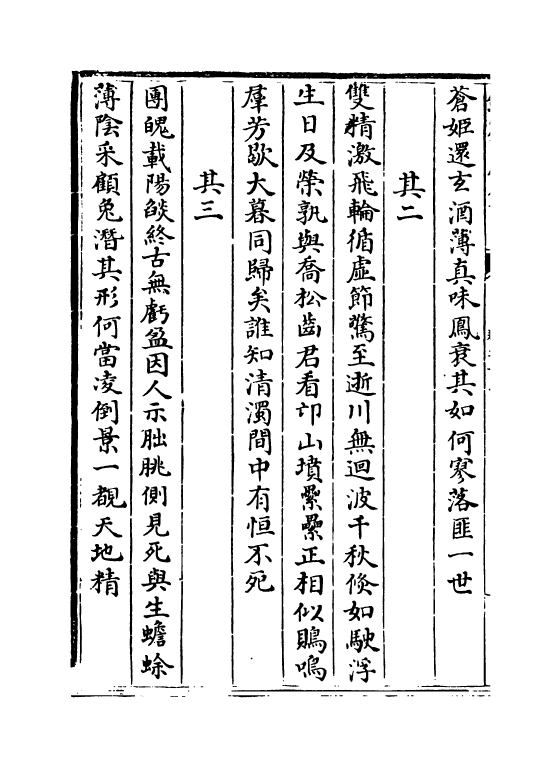 蒼姬還玄酒薄真味鳳衰其如何寥落匪一世
其二
雙精激飛輪循虛節驚至逝川無迴波千秋倏如駛浮
生日及榮孰與喬松齒君看邙山墳纍纍正相似鵙鳴
羣芳歇大暮同歸矣誰知清濁間中有恒不死
其三
團魄載陽燄終古無虧盈因人示朏朓側見死與生蟾蜍
薄陰采顧兔潛其形何當凌倒景一覩天地精